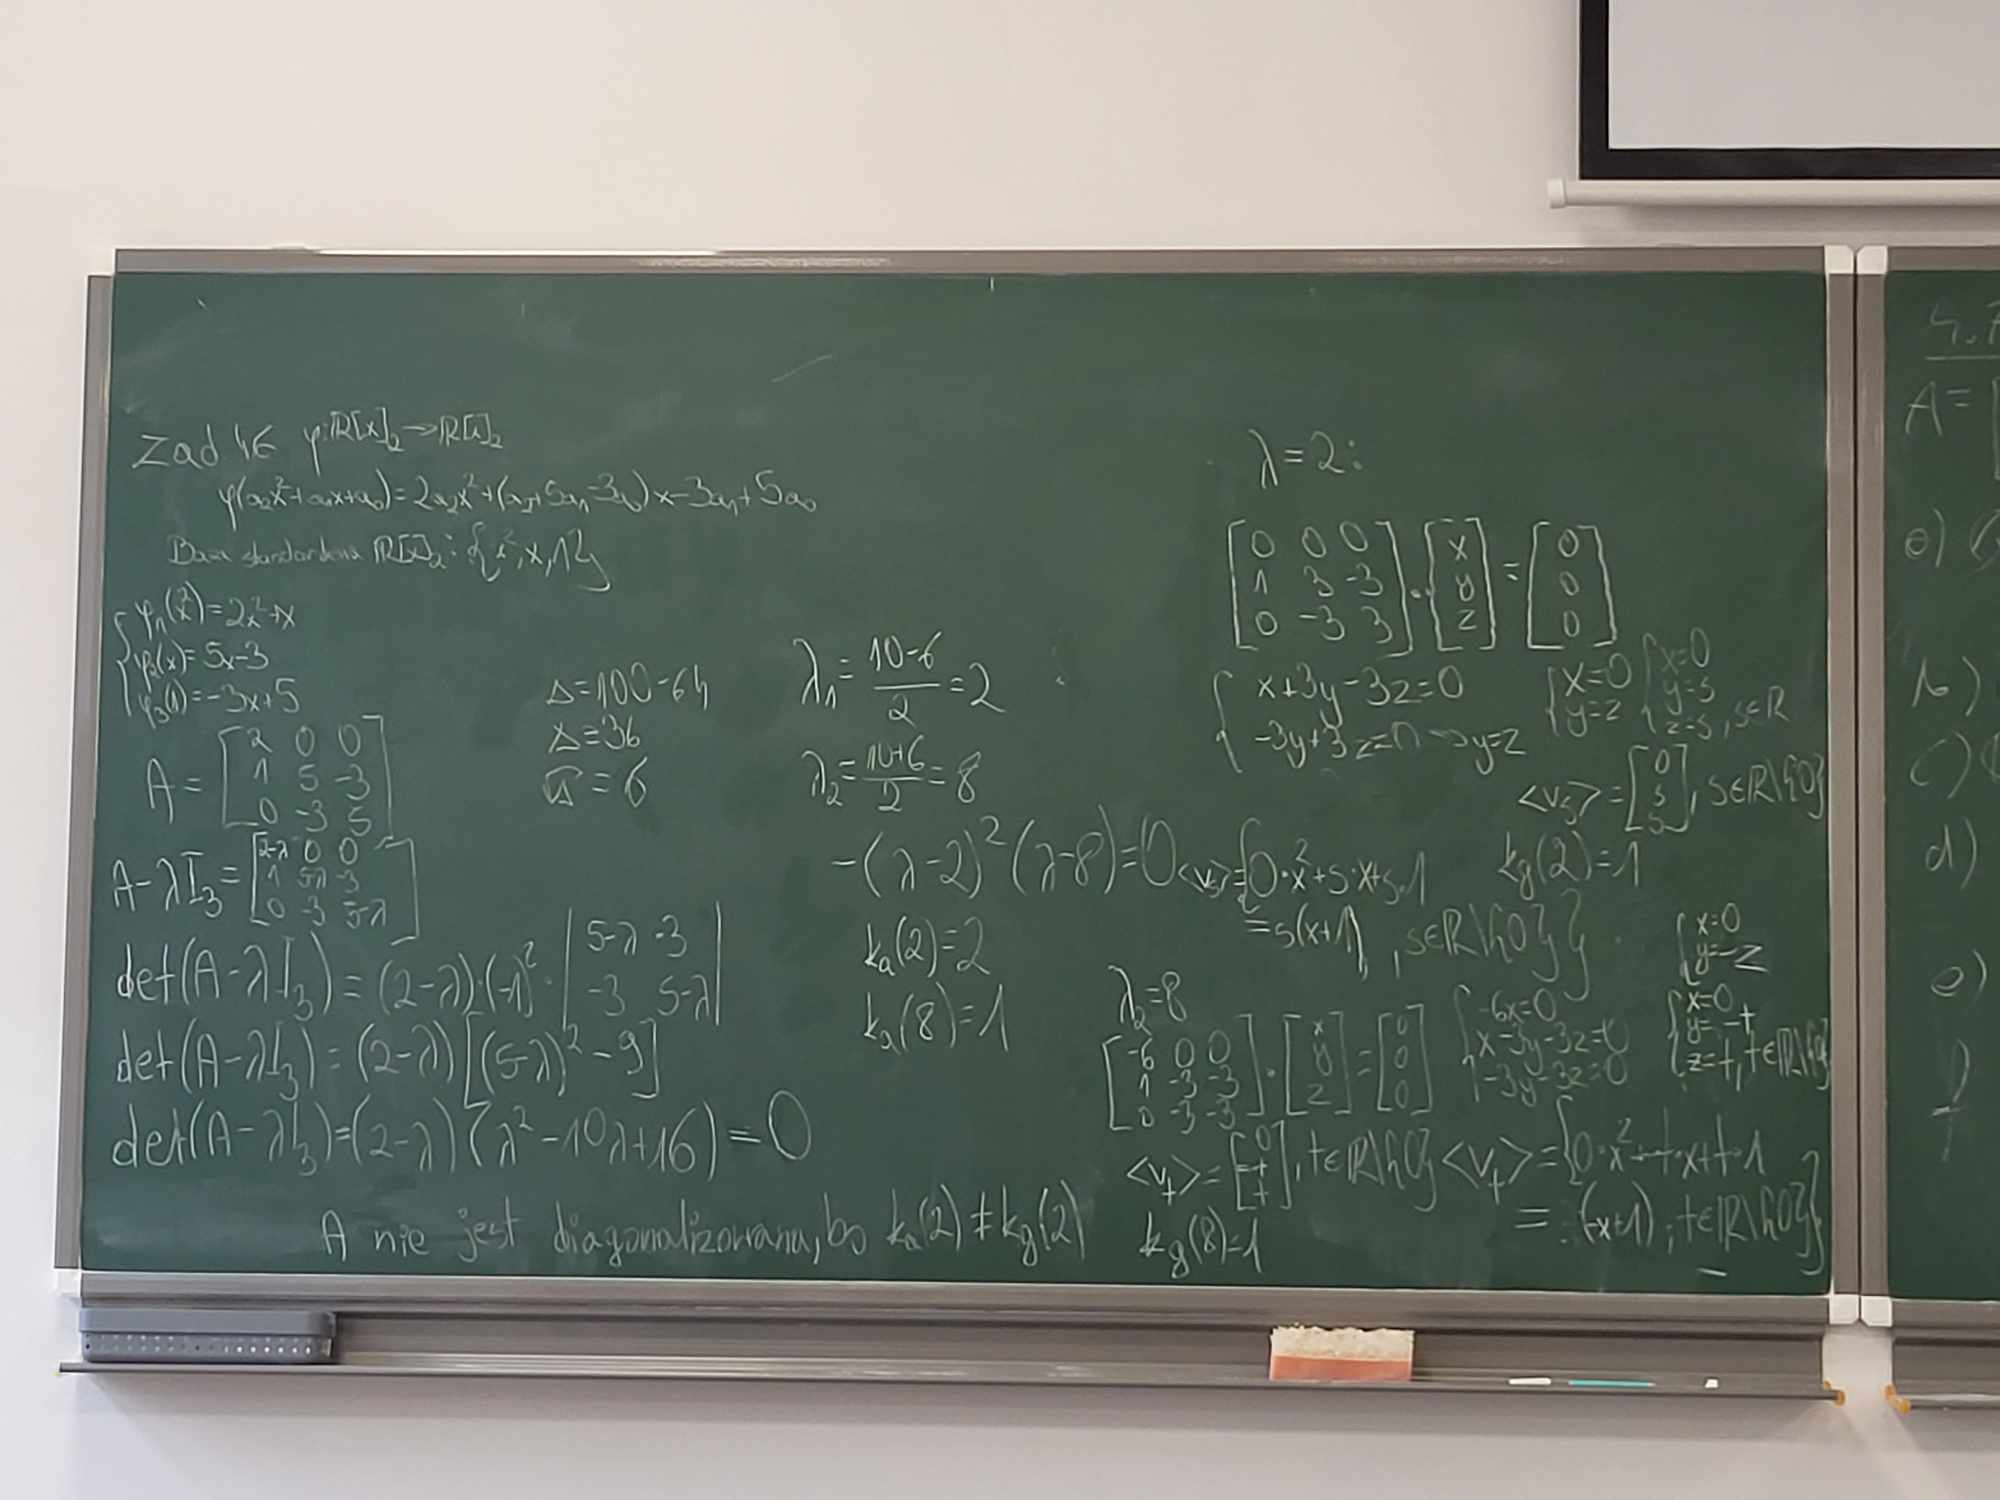 Zad 4.6 φ:ℝ[x]₂→ℝ[x]₂
φ(a₂x²+a₁x+a₀)=2a₂x²+(a₂+5a₁-3a₀)x-3a₁+5a₀
Baza standardowa ℝ[x]₂: {x²,x,1}
φ₁(x²)=2x²+x
φ₂(x)=5x-3
φ₃(1)=-3x+5
A = [2 0 0
1 5 -3
0 -3 5]
A-λI₃= [2-λ 0 0
1 5-λ -3
0 -3 5-λ]
det(A-λI₃)=(2-λ)·(-1)²· |5-λ -3
-3 5-λ|
det(A-λI₃)=(2-λ)[(5-λ)²-9]
det(A-λI₃)=(2-λ)(λ²-10λ+16)=0
Δ=100-64
Δ=36
√Δ=6
λ₁= (10-6)/2 =2
λ₂= (10+6)/2 =8
-(λ-2)²(λ-8)=0
kₐ(2)=2
kₐ(8)=1
λ=2:
[0 0 0
1 3 -3
0 -3 3] · [x
y
z] = [0
0
0]
x+3y-3z=0
-3y+3z=0 → y=z
{x=0
y=z
{x=0
y=s
z=s, s∈ℝ
<vₛ>= [0
s
s], s∈ℝ\{0}
k_g(2)=1
<vₛ>={0·x²+s·x+s·1
=s(x+1), s∈ℝ\{0}}
λ₂=8
[-6 0 0
1 -3 -3
0 -3 -3] · [x
y
z] = [0
0
0]
{-6x=0
x-3y-3z=0
-3y-3z=0
{x=0
y=-z
{x=0
y=-t
z=t, t∈ℝ\{0}
<vₜ>= [0
-t
t], t∈ℝ\{0}
k_g(8)=1
<vₜ>={0·x²-t·x+t·1
= (-x+1); t∈ℝ\{0}}
A nie jest diagonalizowana, bo kₐ(2)≠k_g(2)
A=
a)
b)
c)
d)
e)
f